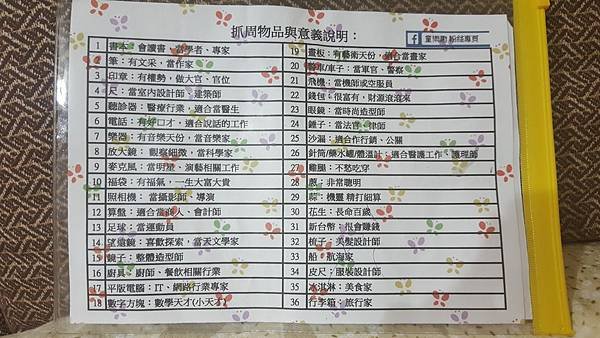 抓周物品與意義說明：
童樂趣 粉絲專頁
1 書本：會讀書，當學者、專家
2 筆：有文采，當作家
3 印章：有權勢，做大官、官位
4 尺：當室內設計師、建築師
5 聽診器：醫療行業，適合當醫生
6 電話：有好口才，適合說話的工作
7 樂器：有音樂天份，當音樂家
8 放大鏡： 觀察細微，當科學家
9 麥克風：當明星，演藝相關工作
10 福袋：有福氣，一生大富大貴
11 照相機： 當攝影師、導演
12 算盤：適合當商人、會計師
13 足球：當運動員
14 望遠鏡：喜歡探索，當天文學家
15 鏡子：整體造型師
16 廚具：廚師、餐飲相關行業
17 平版電腦：IT、網路行業專家
18 數字方塊：數學天才(小天才)
19 畫板：有藝術天份，適合當畫家
20 警車/車子：當軍官、警察
21 飛機：當機師或空服員
22 錢包：很富有，財源滾滾來
23 眼鏡：當時尚造型師
24 錘子：當法官、律師
25 沙漏：適合作行銷、公關
26 針筒/藥水罐/體溫計：適合醫護工作、護理師
27 雞腿：不愁吃穿
28 蔥：非常聰明
29 蒜：機靈 精打細算
30 花生：長命百歲
31 新台幣：很會賺錢
32 梳子：美髮設計師
33 船：航海家
34 皮尺：服裝設計師
35 冰淇淋：美食家
36 行李箱：旅行家